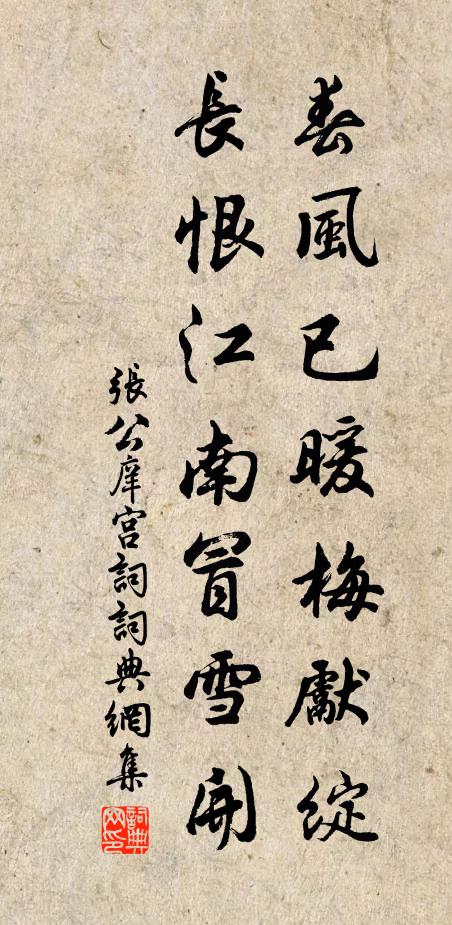 春風已暖梅獻綻
長恨江南冒雪開
張公庠宮詞詞典網集
詞典网印